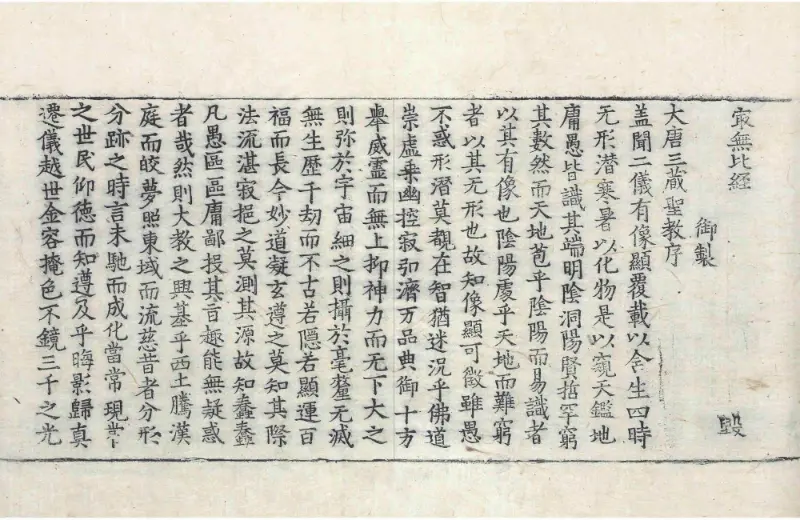 㝡無比經
毀
御製
大唐三蔵聖教序
盖聞二儀有像顯覆載以含生四時
无形潜寒暑以化物是以窺天鑑地
庸愚皆識其端明陰洞陽賢哲罕窮
其數然而天地苞乎陰陽而易識者
以其有像也陰陽處乎天地而難窮
者以其无形也故知像顯可徵雖愚
不惑形潛莫覩在智猶迷況乎佛道
崇虛乗幽控寂弘濟万品典御十方
舉威靈而無上抑神力而无下大之
則弥於宇宙細之則攝於毫釐无滅
無生歷千劫而不古若隱若顯運百
福而長今妙道凝玄遵之莫知其際
法流湛寂挹之莫測其源故知蠢蠢
凡愚區區庸鄙投其旨趣能無疑惑
者哉然則大教之興基乎西土騰漢
庭而皎夢照東域而流慈昔者分形
分跡之時言未馳而成化當常現
之世民仰德而知遵及乎晦影歸真
遷儀越世金容掩色不鏡三千之光